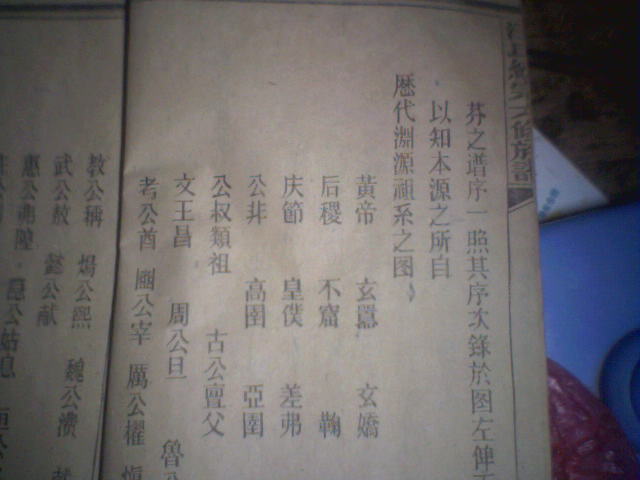 芬之谱序一照其序次錄於图左俾
以知本源之所自
歴代淵源祖系之图
黃帝 玄囂 玄嬌
后稷 不窟 鞠
庆节 皇僕 差弗
公非 高圉 亞圉
公叔類祖 古公亶父
文王昌 周公旦 魯
考公酋 幽公宰 厲公櫂
教公稱 煬公熙 魏公濆
武公敖 懿公献
惠公弗隍